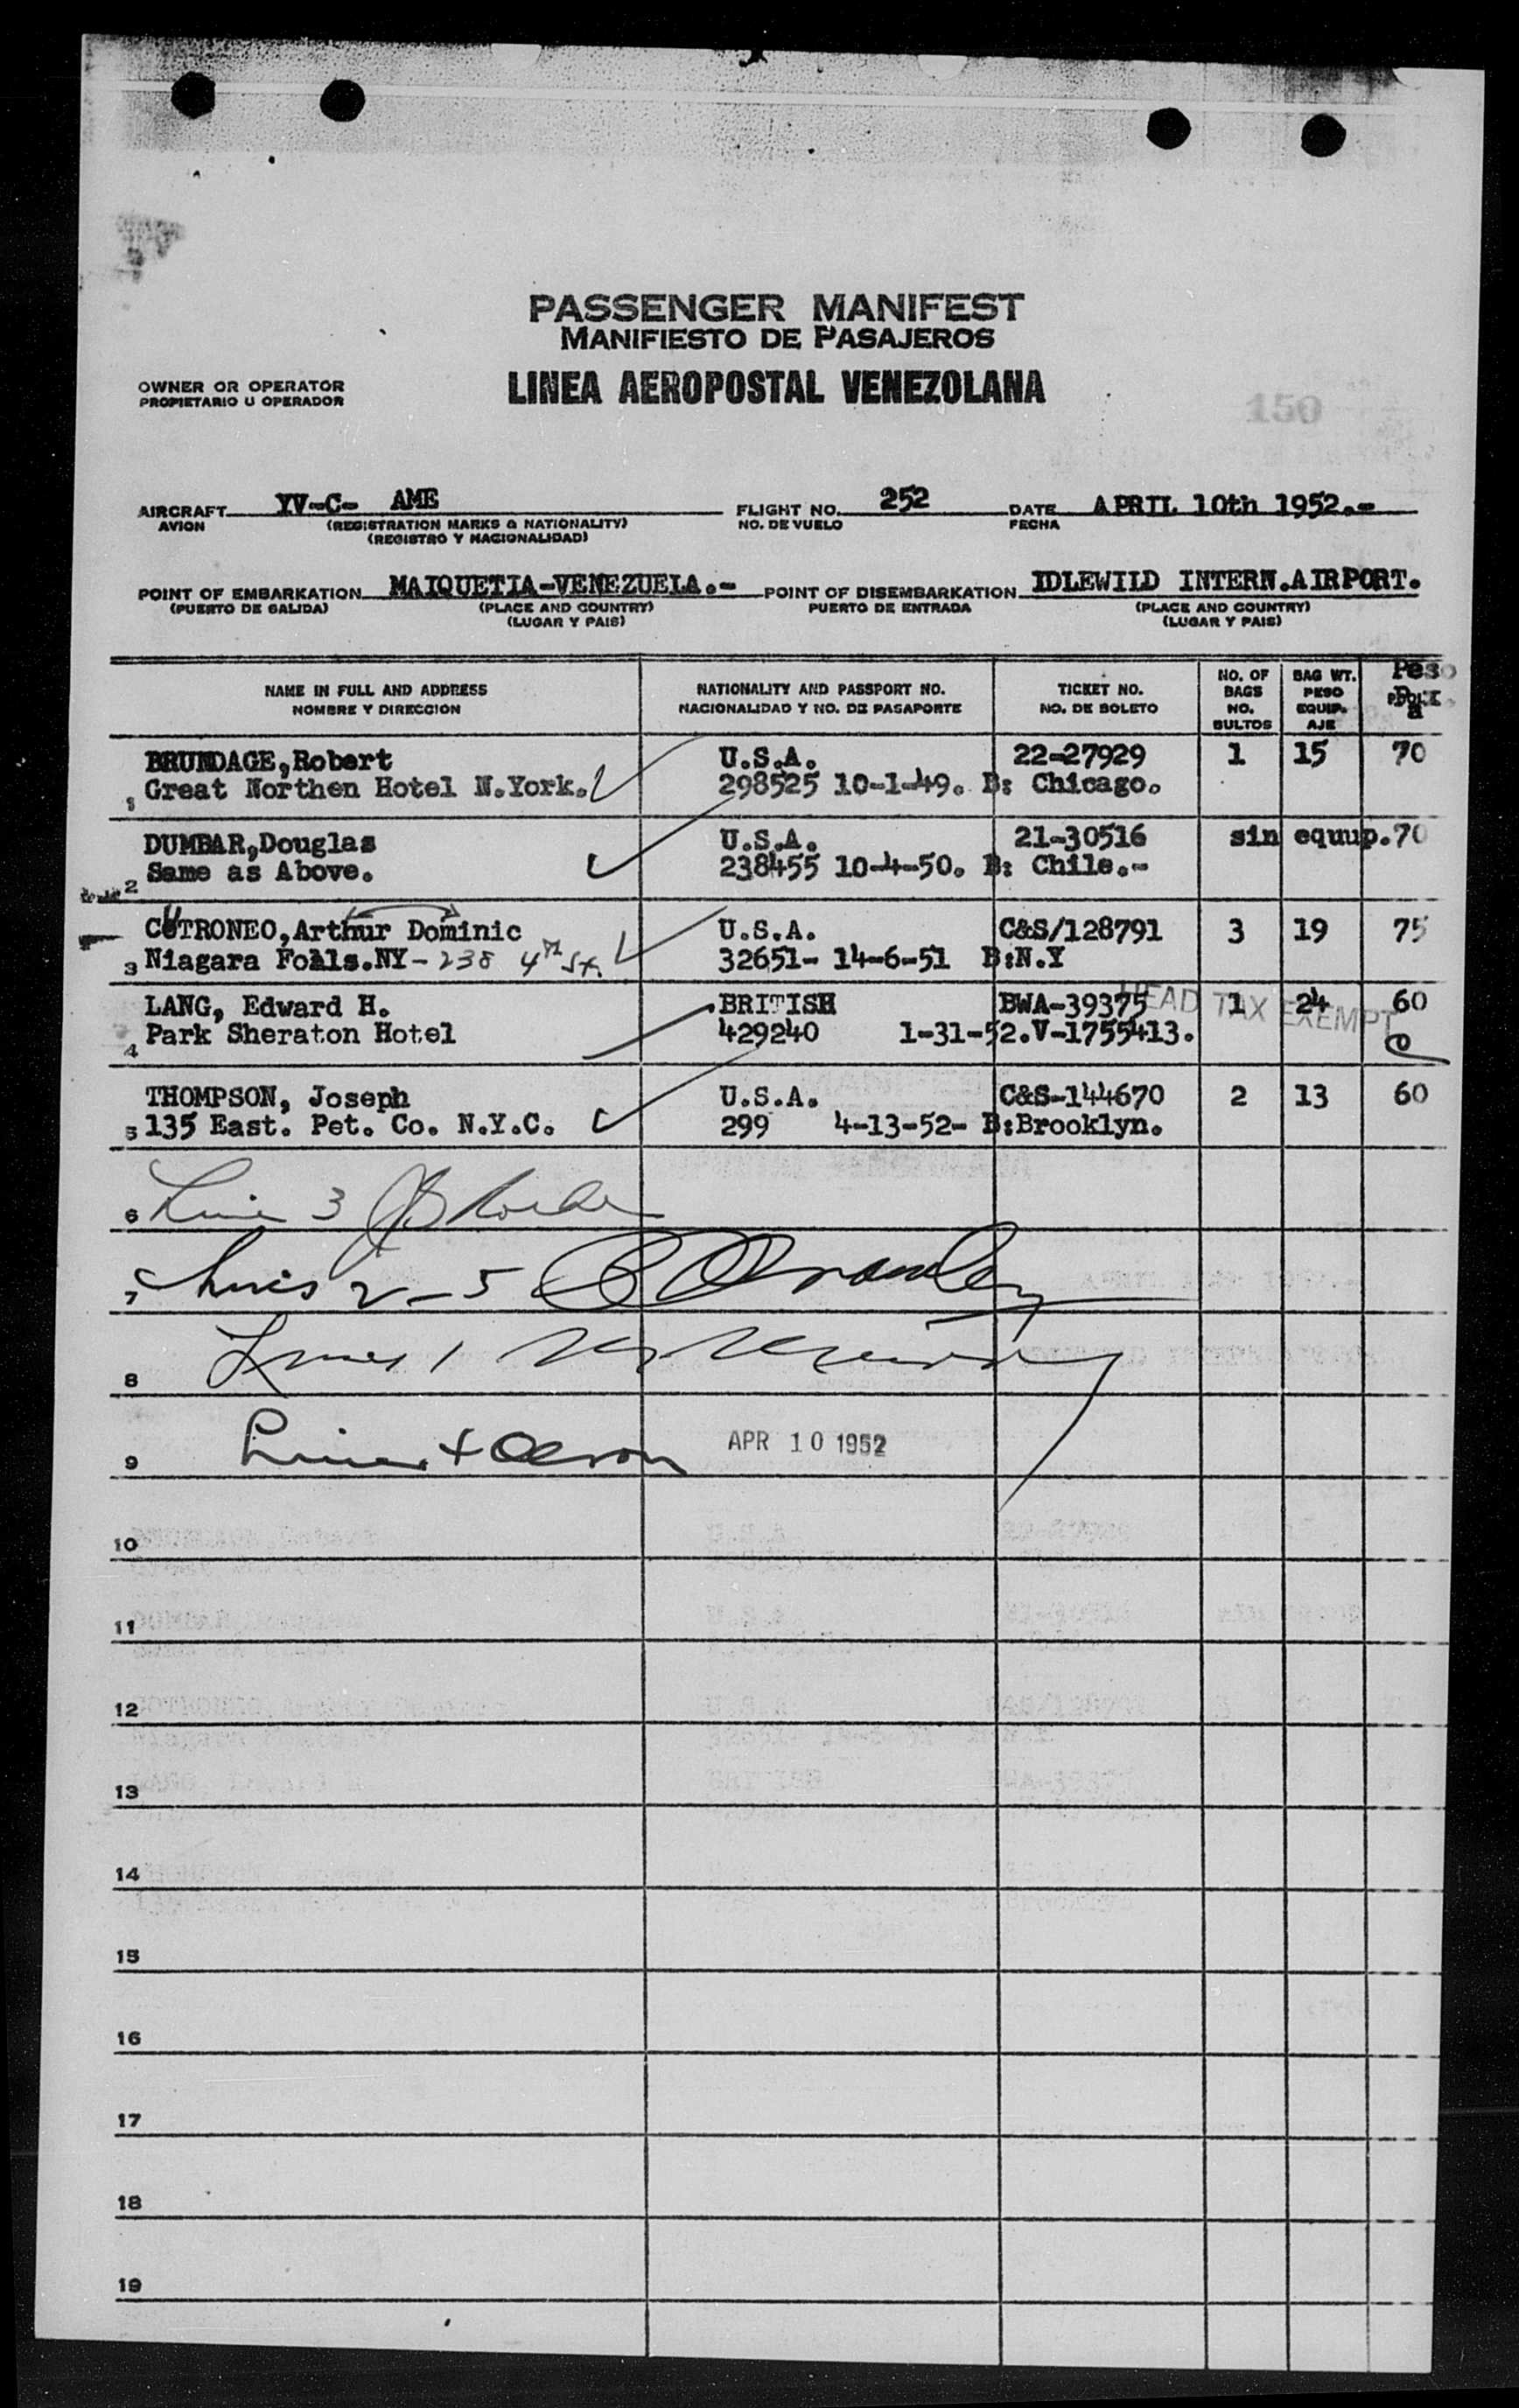 PASSENGER MANIFEST
MANIFIESTO DE PASAJEROS
OWNER OR OPERATOR
PROPIETARIO U OPERADOR
LINEA AEROPOSTAL VENEZOLANA
150
AIRCRAFT YV-C- AME FLIGHT NO. 252 DATE APRIL 10th 1952.-
AVION (REGISTRATION MARKS & NATIONALITY) NO. DE VUELO FECHA
(REGISTRO Y NACIONALIDAD)
POINT OF EMBARKATION MAIQUETIA-VENEZUELA.- POINT OF DISEMBARKATION IDLEWILD INTERN.AIRPORT.
(PUERTO DE SALIDA) (PLACE AND COUNTRY) PUERTO DE ENTRADA (PLACE AND COUNTRY)
(LUGAR Y PAIS) (LUGAR Y PAIS)
NAME IN FULL AND ADDRESS
NOMBRE Y DIRECCION
NATIONALITY AND PASSPORT NO.
NACIONALIDAD Y NO. DE PASAPORTE
TICKET NO.
NO. DE BOLETO
NO. OF
BAGS
NO.
BULTOS
BAG WT.
PESO
EQUIP-
AJE
Peso
BRUNDAGE,Robert U.S.A. 22-27929 1 15 70
1 Great Northen Hotel N.York. 298525 10-1-49. B: Chicago.
DUMBAR,Douglas U.S.A. 21-30516 sin equup. 70
2 Same as Above. 238455 10-4-50. B: Chile.-
CUTRONEO,Arthur Dominic U.S.A. C&S/128791 3 19 75
3 Niagara Foals.NY - 238 4th St. 32651- 14-6-51 B:N.Y
LANG, Edward H. BRITISH BWA-39375 1 24 60
HEAD TAX EXEMPT
4 Park Sheraton Hotel 429240 1-31-52.V-1755413.
THOMPSON, Joseph U.S.A. C&S-144670 2 13 60
5 135 East. Pet. Co. N.Y.C. 299 4-13-52- B:Brooklyn.
6 Line 3
7 2-5
8 1
9 APR 10 1952
10
11
12
13
14
15
16
17
18
19